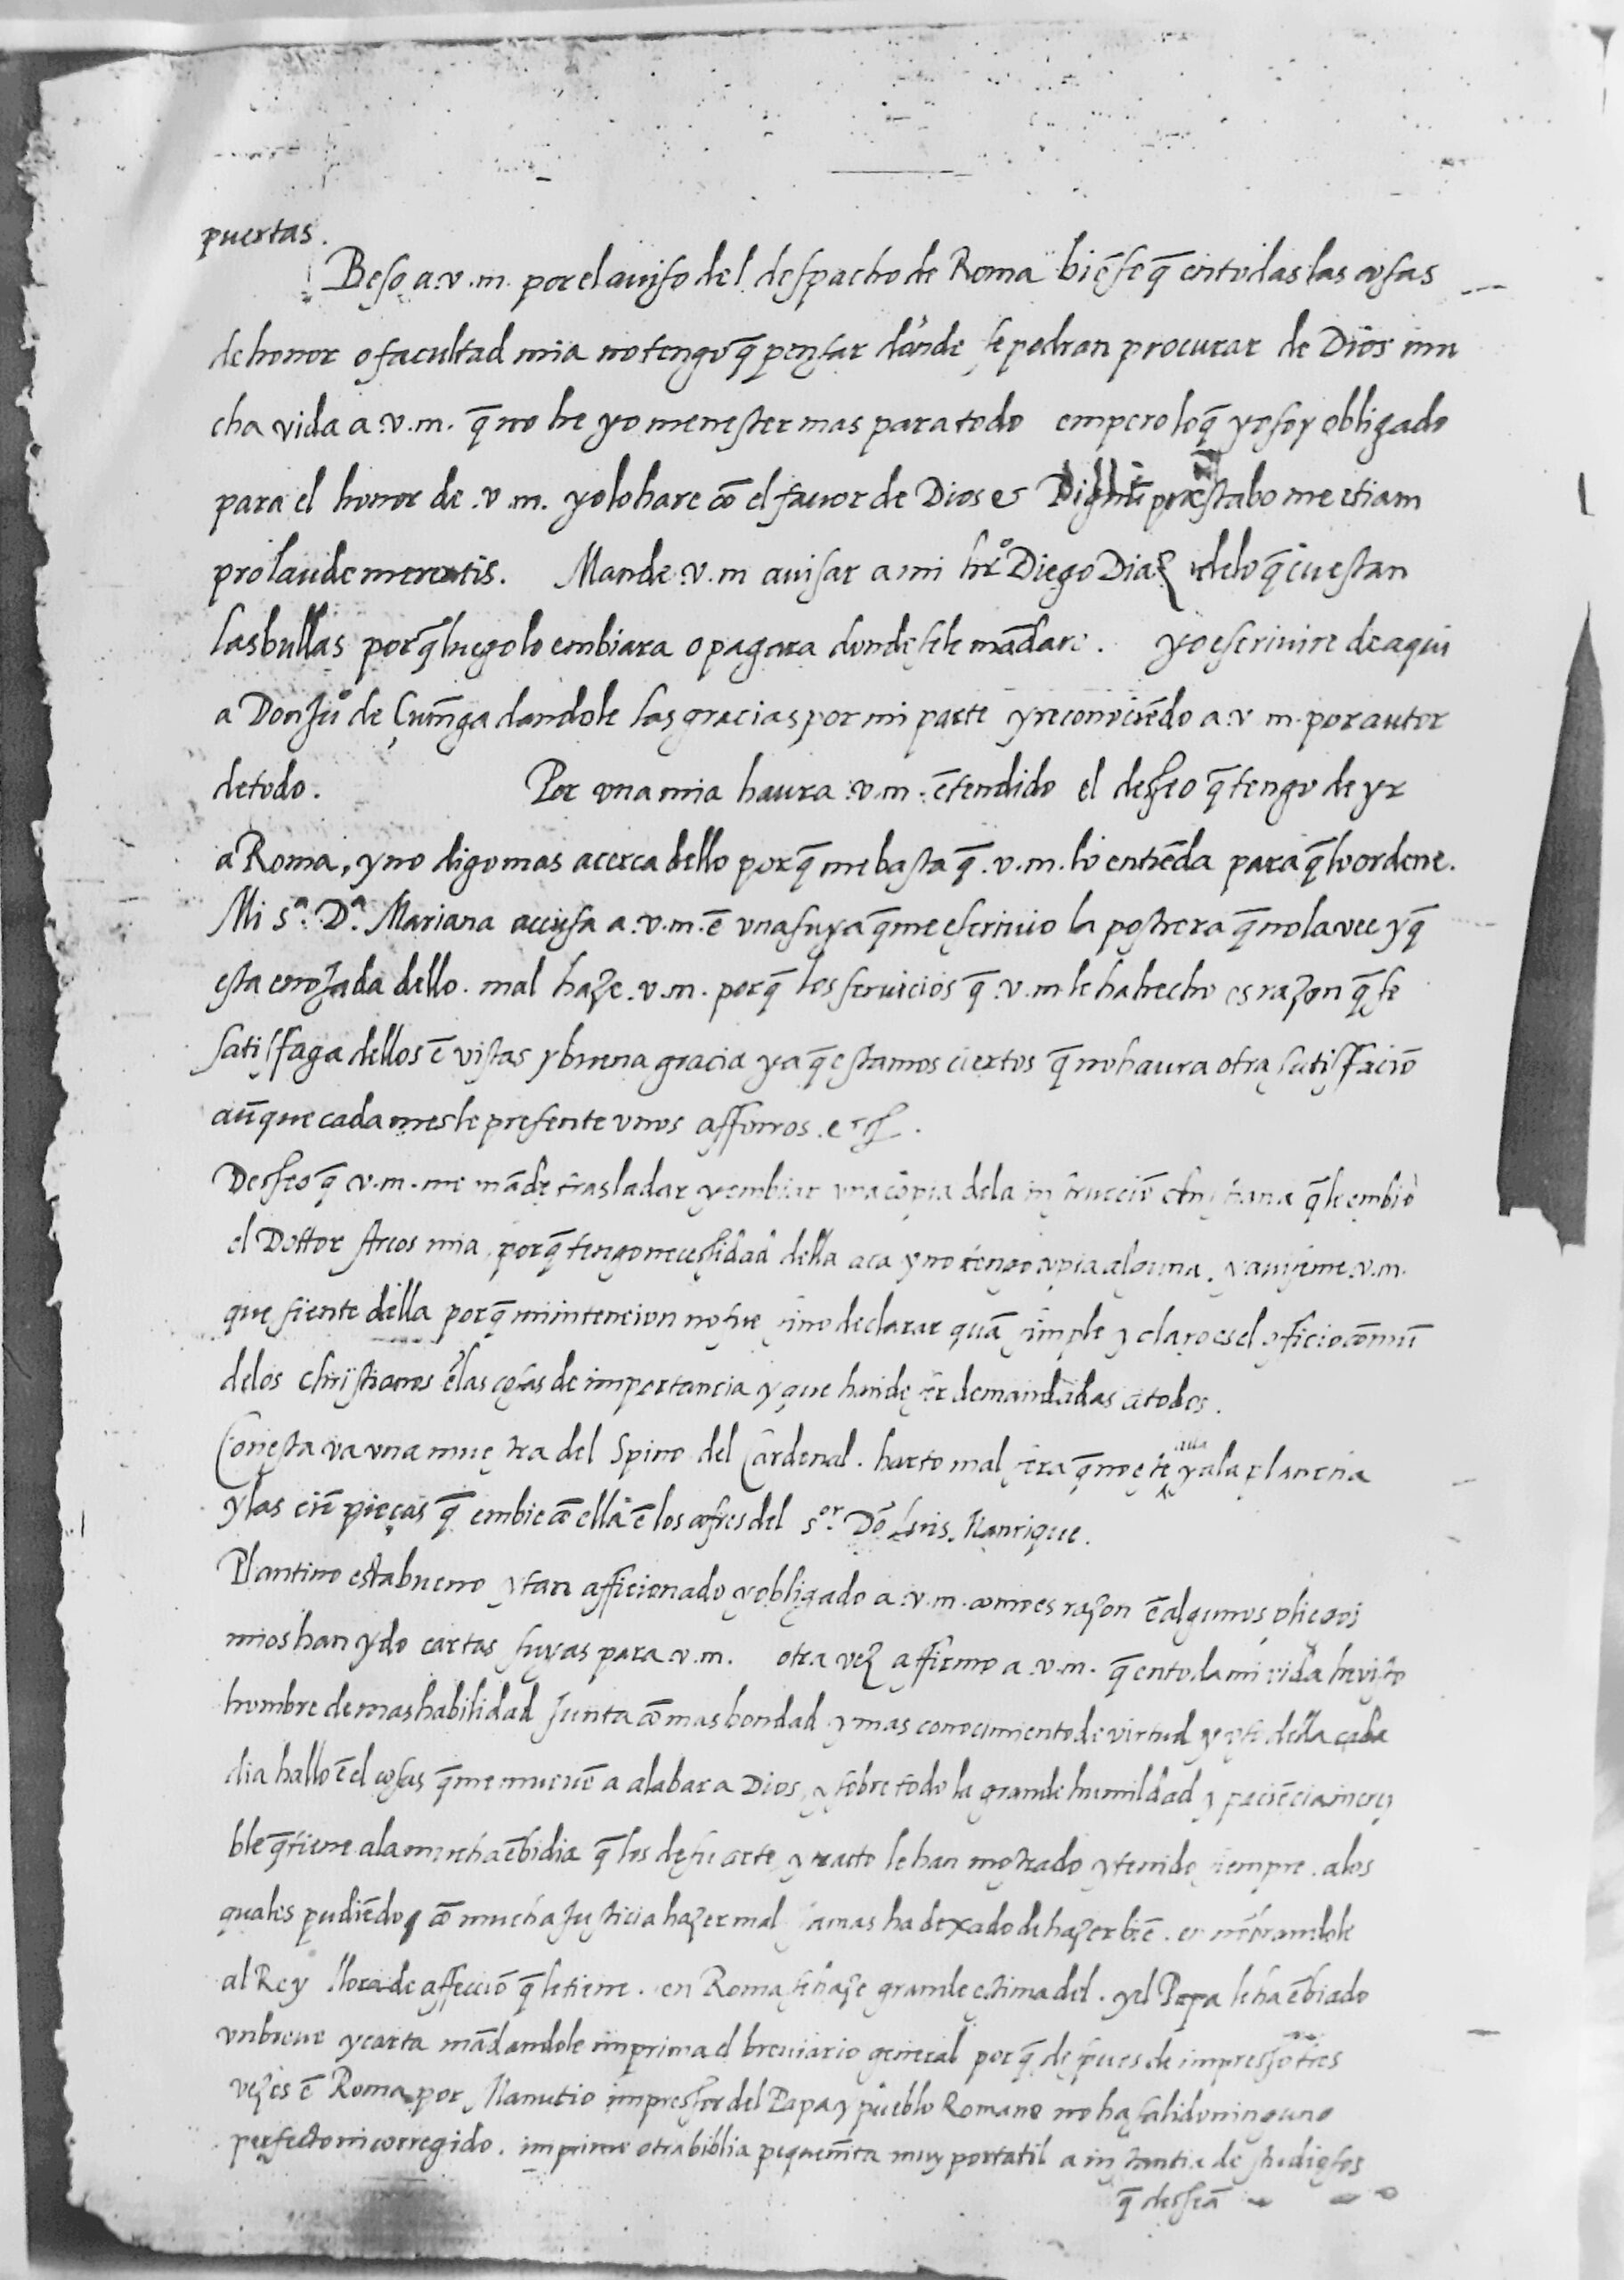 puertas.
Beso a .v.m. por el auiso del despacho de Roma biē se q̄ en todas las cosas
de honor o facultad mia no tengo q̄ pensar dōnde se podran procurar de Dios mu
cha vida a .v.m. q̄ no he yo menester mas para todo empero lo q̄ yo soy obligado
para el honor de .v.m. yo lo hare cō el fauor de Dios et Dignū præstabo me etiam
pro laude merentis. Mande .v.m avisar a mi hr̄o Diego Diaz de lo q̄ cuestan
las bullas porq̄ luego lo embiara o pagara donde se le mādare. yo escriuire de aqui
a Don Juº de Çuñiga dandole las gracias por mi parte y reconociēdo a .v.m. por autor
de todo. Por vna mia haura .v.m. ētendido el desseo q̄ tengo de yr
a Roma, y no digo mas acerca dello porq̄ me basta q̄ .v.m. lo entiēda para q̄ lo ordene.
Mi sª. Dª. Mariana accusa a .v.m. ē vna suya q̄ me escriuio la postrera q̄ no la vee y q̄
esta enojada dello. mal haze .v.m. porq̄ los seruicios q̄ .v.m. le ha hecho es razon q̄ se
satisffaga dellos ē vistas y buena gracia ya q̄ estamos ciertos q̄ no haura otra satisffaciō
aūque cada mes le presente vnos afforros. etc.
Desseo q̄ v.m. me māde trasladar y embiar vna copia dela instrucciō christiana q̄ le embio
el Dottor Arcos mia, porq̄ tengo necessidad della aca y no tengo copia alguna. y auiseme .v.m.
que siente della porq̄ mi intencion no fue sino declarar quā simple y claro es el officio comū
de los christianos ē las cosas de importancia y que han de ser demandadas a todos.
Con esta va vna muestra del Spino del Cardenal. harto mal sera q̄ no este alla ya la plancha
y las ciē pieças q̄ embie cō ella ē los cofres del sºr. Dō Luis Manrique.
Plantino esta bueno y tan afficionado y obligado a .v.m. como es razon ē algunos pliegos
mios han ydo cartas suyas para .v.m. otra vez affirmo a .v.m. q̄ en toda mi vida he visto
hombre de mas habilidad junta cō mas bondad y mas conocimiento de virtud y della cada
dia hallo ē el cosas q̄ me mueuē a alabar a Dios, y sobre todo la grande humildad y paciēcia increy
ble q̄ tiene a la mucha ēbidia q̄ los de su arte y tracto le han mostrado y tenido siempre. a los
quales pudiēdo cō mucha justicia hazer mal jamas ha dexado de hazer biē. en nōbrandole
al Rey llora de affecciō q̄ le tiene. en Roma se haze grande estima del. y el Papa le ha ēbiado
vn breue y carta mādandole imprima el breuiario general porq̄ despues de impresso tres
vezes ē Roma por Manutio impressor del Papa y pueblo Romano no ha salido ninguno
perfecto ni corregido. imprime otra biblia pequeñita muy portatil a instantia de studiosos
q̄ desseā